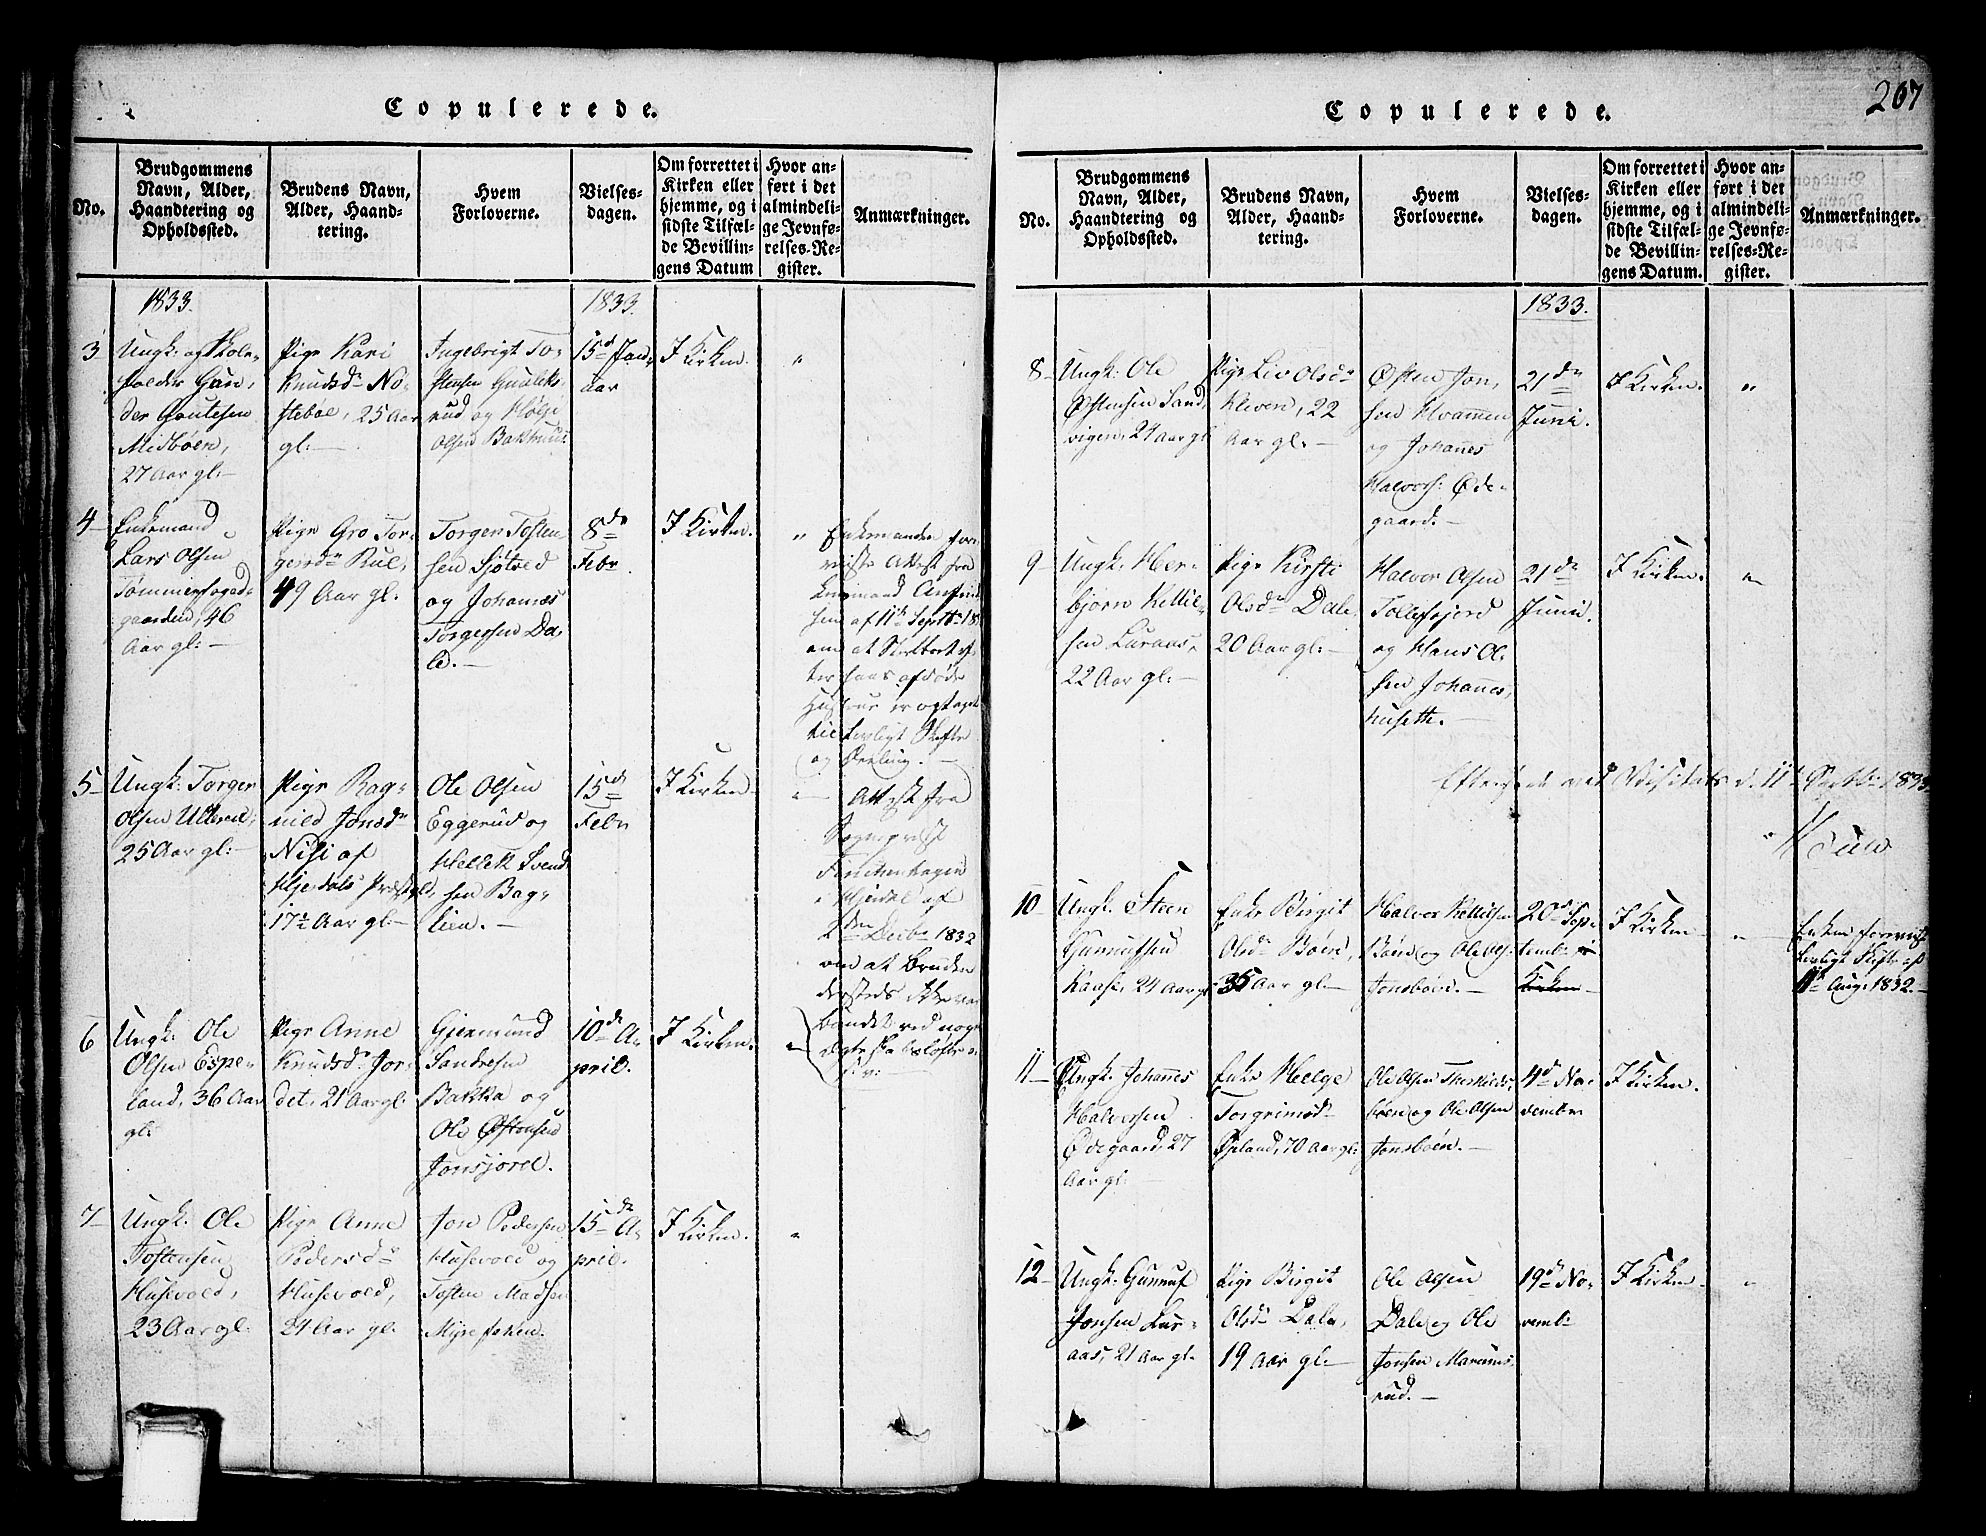 Copulerede.
No.
Brudgommens
Navn, Alder,
Haandtering og
Opholdssted.
Brudens Navn,
Alder, Haand-
tering.
Hvem
Forloverne.
Vielses-
dagen.
Om forrettet i
Kirken eller
hjemme, og i
sidste Tilfæl-
de Bevillin-
gens Datum
Hvor an-
ført i det
almindeli-
ge Jevnfø-
relses-Re-
gister.
Anmærkninger.
1833.
1833.
3
Ungk: og Skole-
holder Gun,
der Gutesen
Midbøen,
27 Aar gl:-
Pige Kari
Knudsd. No-
stebøe, 25 Aar
gl:-
Ingebrigt To-
stensen
rud og Hølje
Olsen Bakhuus
15d Janu-
aar
I Kirken.
"
4-
Enkemand
Lars Olsen
Tømmerfoged-
gaarden, 46
Aar gl:-
Pige Gro Tor-
gersdr Rue,
49 Aar gl:
Torger Tosten-
sen Sjøtved
og Johannes
Torgersen Da-
le.-
8de
Febr
I Kirken.
"
Enkemanden fore-
viste Attest fra
Lensmand
sen af 11te Septbr 18
om at Stervboet ef-
ter hans afdøde
Hustrue er optaget
til lovligt Skifte
og Deeling.-
5-
Ungk: Torger
Olsen Ulleren,
25 Aar gl:-
Pige Rag-
nild Jonsdr
Nisi af
Hjerdals Præstegld,
17½ Aar gl:-
Ole Olsen
Eggerud og
Kittel Svend
sen Bag-
lien.-
15de
Febr
I Kirken-
"
Attest fra
Sognepræst
i Hjerdal af
2den Decbr 1832
om at Bruden
dersteds ikke var
bundet ved noget
Ægteskabsløfte
6
Ungk: Ole
Olsen Espe-
land, 36 Aar
gl:
Pige Anne
Knudsdr Jor-
det, 21 Aar gl:
Gjermund
Sondresen
Bakka og
Ole Østensen
Jonsjord.
10de A-
pril.
I Kirken.
"
7-
Ungk: Ole
Tostensen
Husevold,
23 Aar gl:
Pige Anne
Pedersdr
Husevold,
24 Aar gl:
Jon Pedersen
Husevold og
Tosten Madsen
15de A-
pril.
I Kirken.
"
207
Copulerede.
No.
Brudgommens
Navn, Alder,
Haandtering og
Opholdssted.
Brudens Navn,
Alder, Haand-
tering.
Hvem
Forloverne.
Vielses-
dagen.
Om forrettet i
Kirken eller
hjemme, og i
sidste Tilfæl-
de Bevillin-
gens Datum.
Hvor an-
ført i det
almindeli-
ge Jevnfø-
relses-Re-
gister.
Anmærkninger.
1833.
8-
Ungk: Ole
Østensen Sand,
vigen, 24 Aar gl
Pige Liv Olsdr
Kleven, 22
Aar gl:-
Østen Jon,
sen Kvammen
og Johannes
Halvors: Øde-
gaard.-
21de
Juni.
I Kirken.
"
9-
Ungk: Her-
bjørn Kittil-
sen Luraas,
22 Aar gl:-
Pige Kirsti
Olsdr Dale
20 Aar gl:-
Halvor Olsen
Tollefsjord
og Hans Ol-
sen Johannes,
husette.-
21de
Juni.
I Kirken.
"
Efterseet ved Visitats d. 11te Septbr 1833.
10-
Ungk: Steen
Gunnufsen
Kaase, 24 Aar gl
Enke Birgit
Olsdr Bøen,
35 Aar gl:-
Halvor Kittilsen
Bøen og Ole Ols:
Jonsbøen.-
20de Sep-
tembr
Kirken-
I Kirken
"
Enken foreviste
lovligt Skifte af
11te Aug: 1832.-
11-
Ungk: Johannes
Halvorsen
Ødegaard, 27
Aar gl:-
Enke Helge
Torgrimsdr
Øpland, 70 Aar gl:
Ole Olsen Therkilds,
bøen og Ole Olsen
Jonsbøen.-
4de No-
vember
I Kirken.
12-
Ungk: Gunnuf
Jonsen Lur-
aas, 21 Aar gl-
Pige Birgit
Olsdr Dale,
19 Aar gl:-
Ole Olsen
Dale og Ole
Jonsen Marcums
rud.-
19de No-
vembr
I Kirken
"